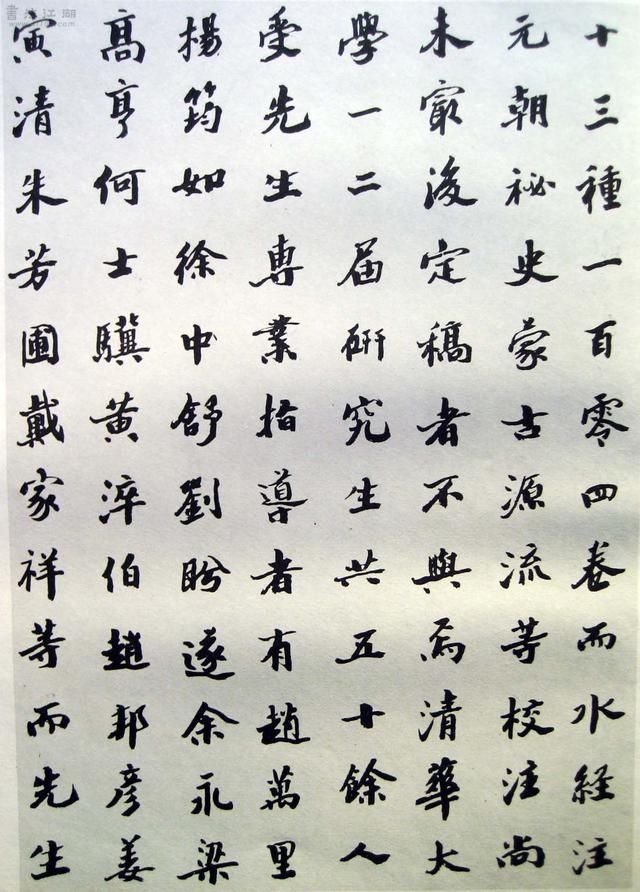 十三種一百零四卷而水経注
元朝祕史蒙古源流等校注尚
未寂後定稿者不與焉清華大
學一二届研究生共五十餘人
受先生専業指導者有趙萬里
楊筠如徐中舒劉盼遂余永梁
高亨何士驥黄淬伯趙邦彦姜
寅清朱芳圃戴家祥等而先生